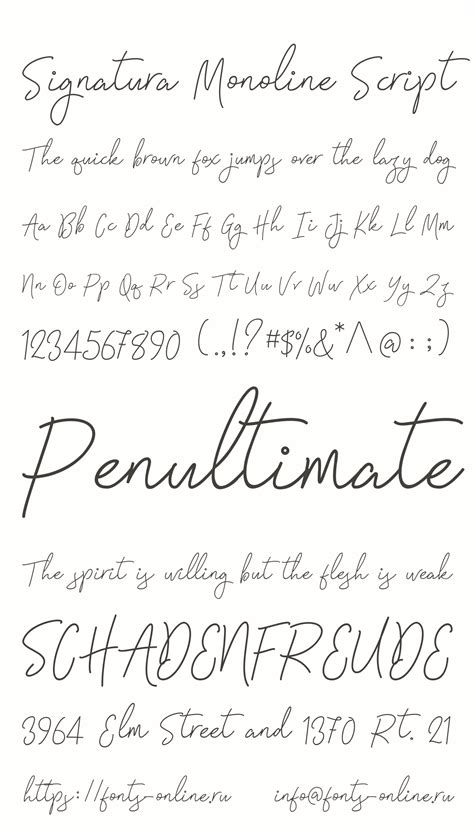 Signatura Monoline Script
The quick brown fox jumps over the lazy dog
Aa Bb Cc Dd Ee Ff Gg Hh Ii Jj Kk Ll Mm
Nn Oo Pp Qq Rr Ss Tt Uu Vv Ww Xx Yy Zz
1234567890 (.,!? #$%&*/\@:;)
Penultimate
The spirit is willing but the flesh is weak
SCHADENFREUDE
3964 Elm Street and 1370 Rt. 21
https://fonts-online.ru info@fonts-online.ru